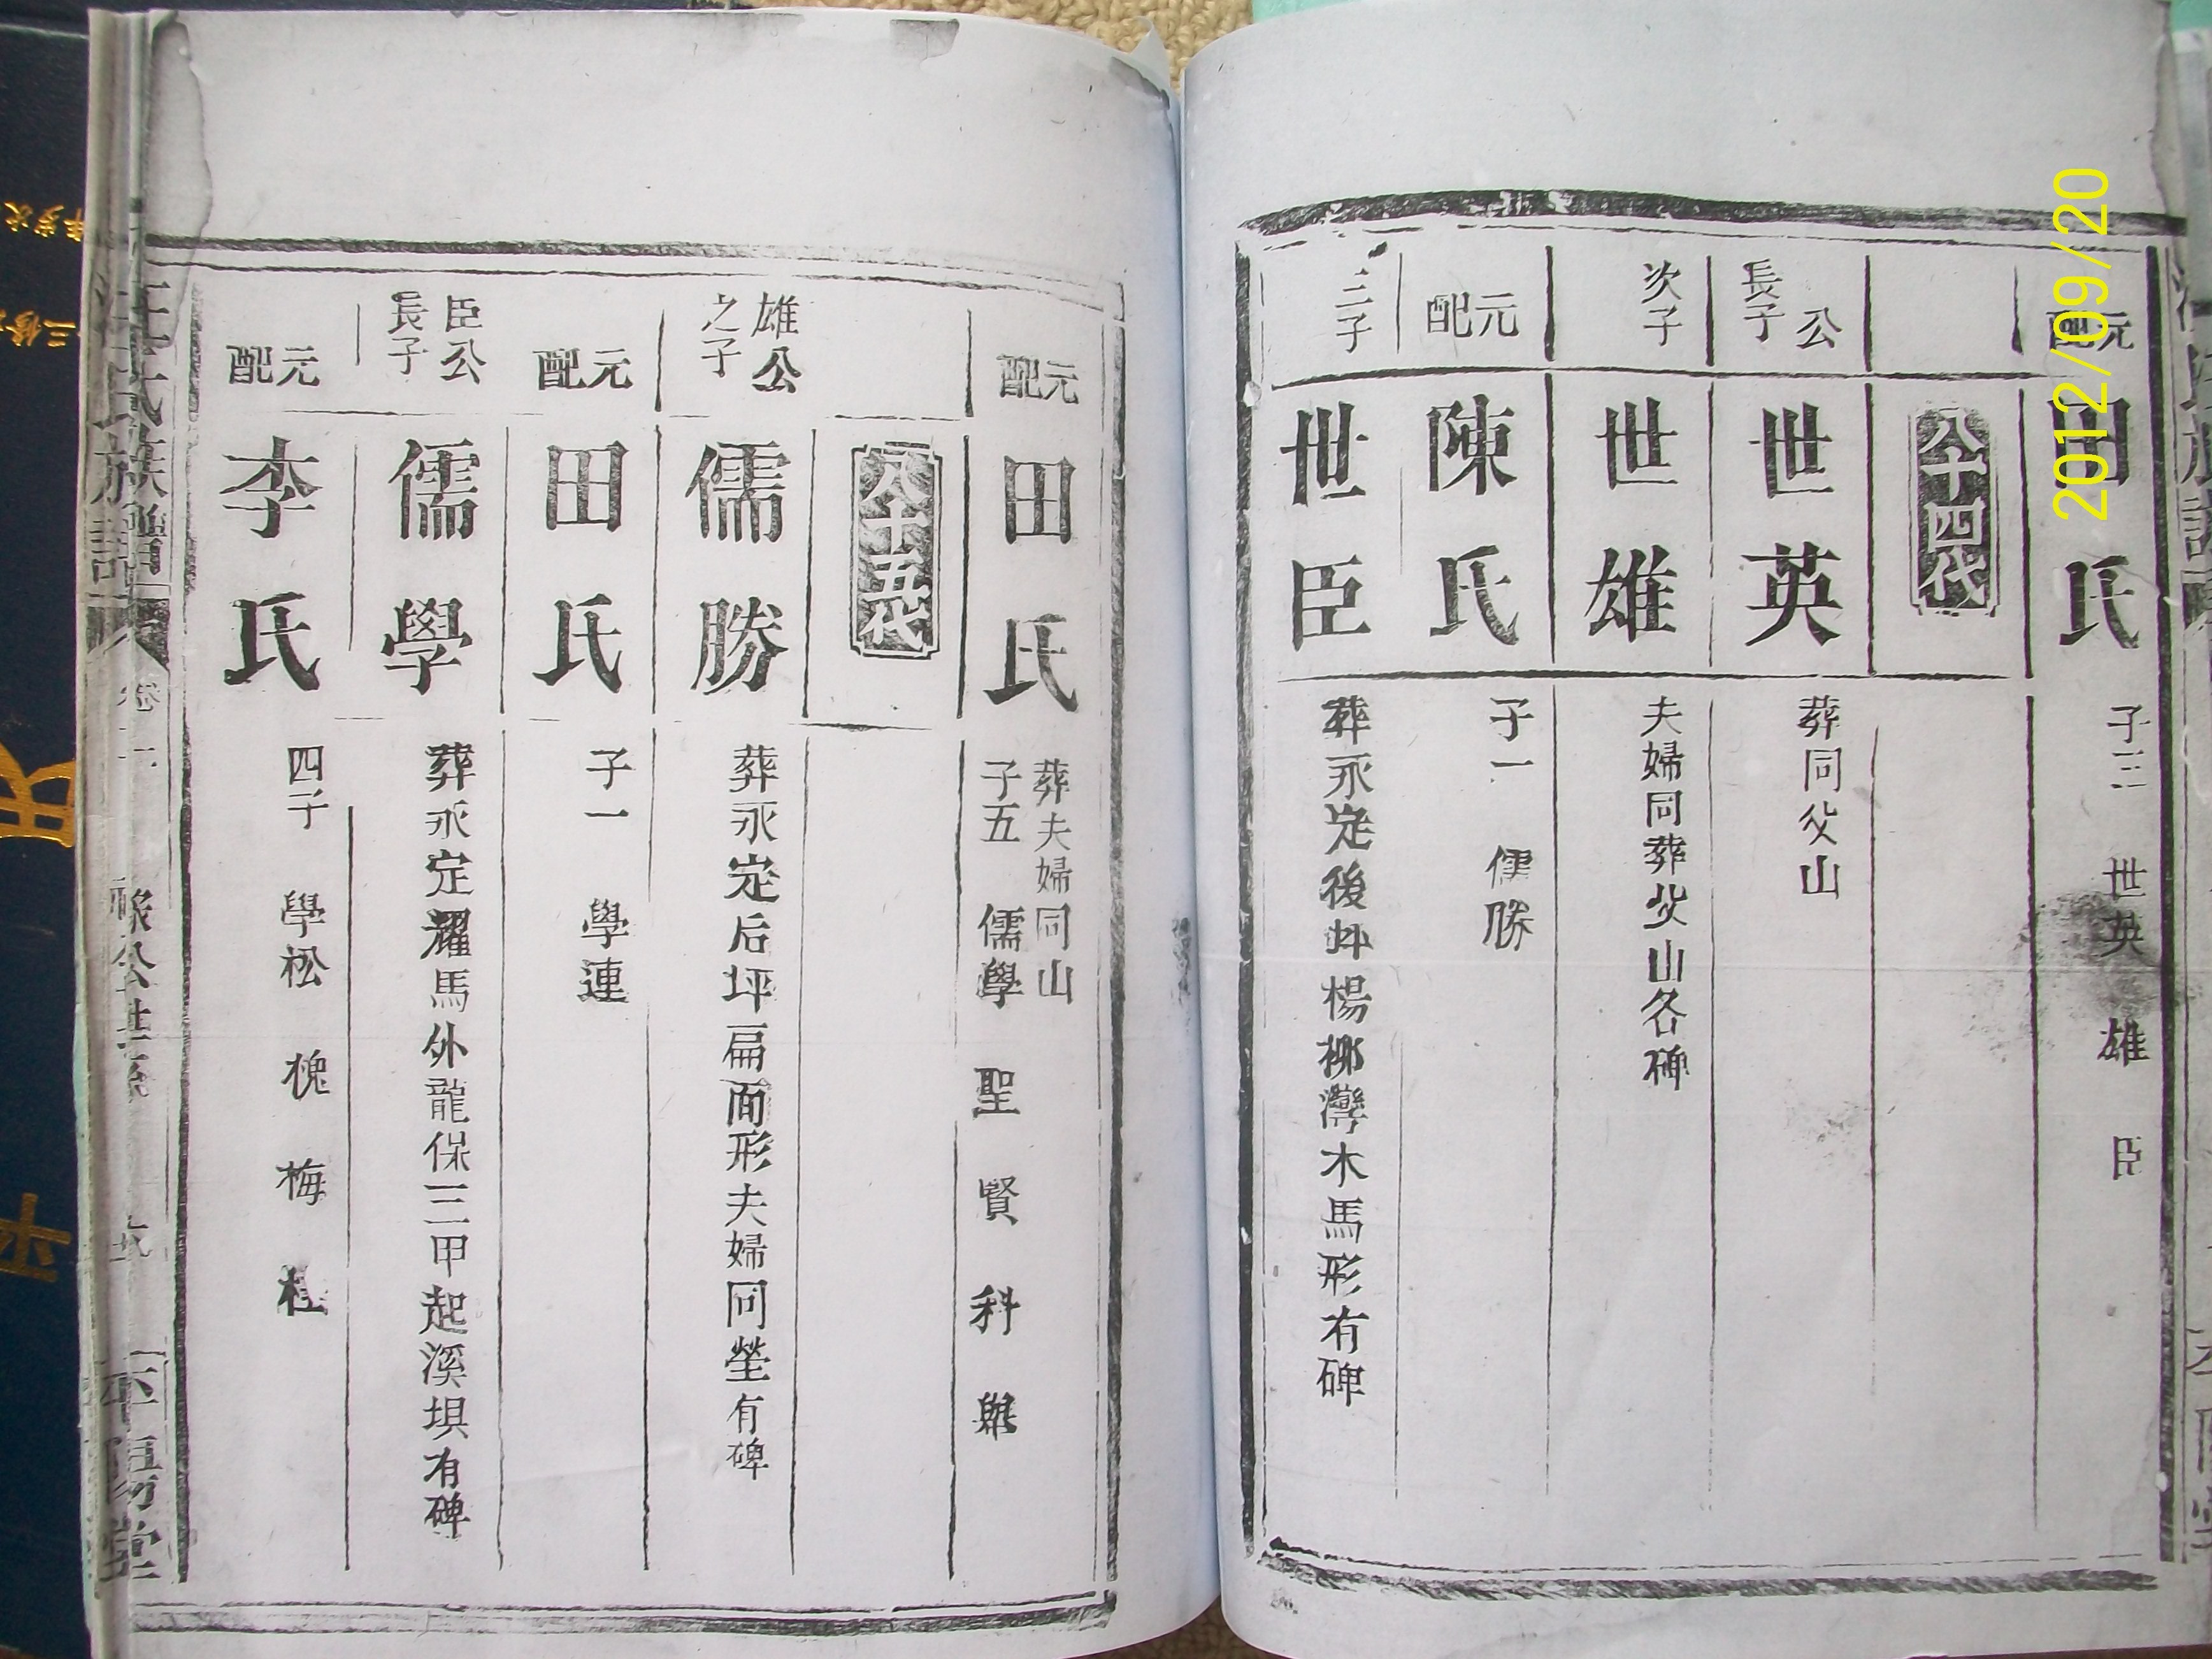 元配
田氏
子三 世英 雄 臣
八十四代
公長子
世英
葬同父山
次子
世雄
夫婦同葬父山各碑
元配
陳氏
子一 儒勝
三子
世臣
葬永定後坪楊柳灣木馬形有碑
元配
田氏
葬夫婦同山
子五 儒學 聖 賢 科 舉
八十五代
雄公之子
儒勝
葬永定后坪扁面形夫婦同塋有碑
元配
田氏
子一 學連
臣公長子
儒學
葬永定灈馬外龍保三甲起溪垻有碑
元配
李氏
四子 學松 槐 梅 桂
汪氏族譜
卷 公世系
平陽堂
2012/09/20